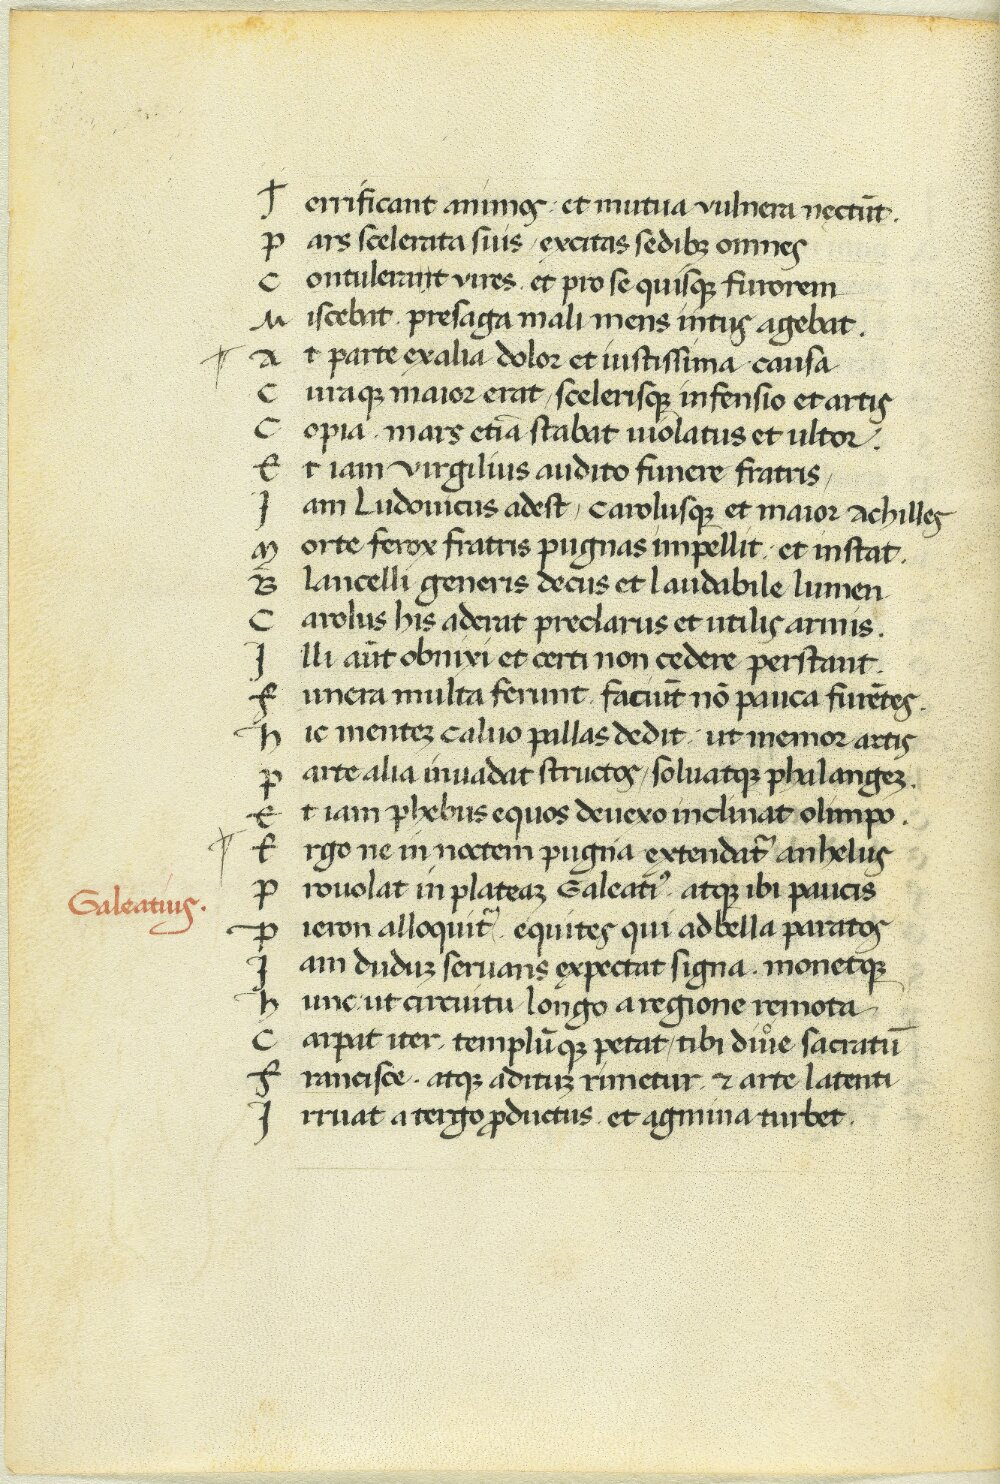 Terrificant animos · et mutua vulnera nectūt .
Pars scelerata suis / excitas sedibꝫ omnes
Contulerant vires . et pro se quisqꝫ furorem
Miscebat . presaga mali mens intus agebat .
At parte ex alia dolor et iustissima causa
Curaqꝫ maior erat / scelerisqꝫ infensio et artis
Copia . mars etiā stabat uiolatus et ultor .
Et iam virgilius audito funere fratris /
Iam Ludouicus adest / Carolusqꝫ et maior Achilles
Morte ferox fratris pugnas impellit . et instat .
Blancelli generis decus et laudabile lumen
Carolus his aderat preclarus et utilis armis .
Illi aūt obnixi et certi non cedere perstant .
Funera multa ferunt . faciūt nō pauca furētes .
Hic menteꝫ caluo pallas dedit . ut memor artis
Parte alia inuadat structos / soluatqꝫ phalangeꝫ .
Et iam phebus equos deuexo inclinat olimpo .
Ergo ne in noctem pugna extendat᷑ anhelus
Prouolat in plateaꝫ Galeatiꝰ . atqꝫ ibi paucis
Galeatius .
Pieron alloquit᷑ . equites qui ad bella paratos
Iam duduꝫ seruans expectat signa . monetqꝫ
Hunc ut circuitu longo a regione remota
Carpat iter . templūqꝫ petat / tibi diuͦe sacratū
Francisce . atqꝫ adituꝫ rimetur . ⁊ arte latenti
Irruat a tergo ꝓductus . et agmina turbet .